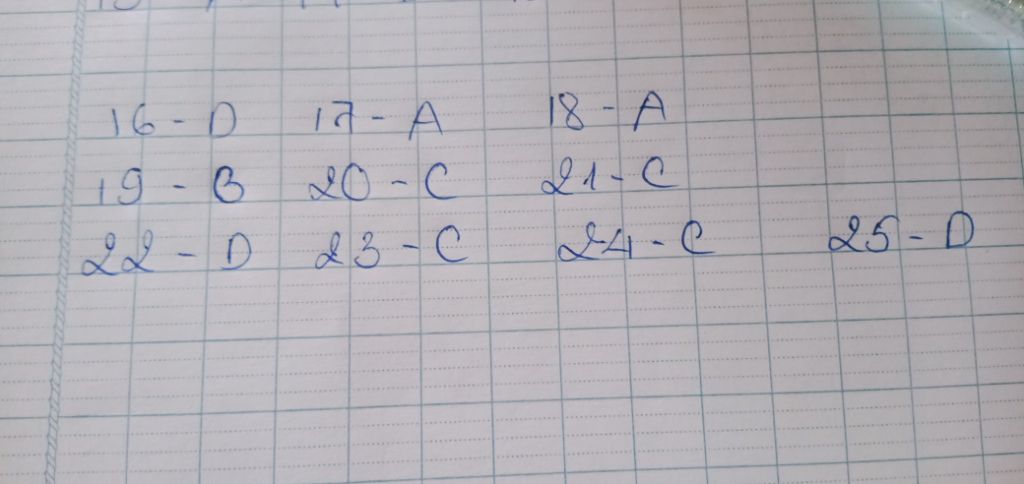 16 - D 17 - A 18 - A
19 - B 20 - C 21 - C
22 - D 23 - C 24 - C 25 - D